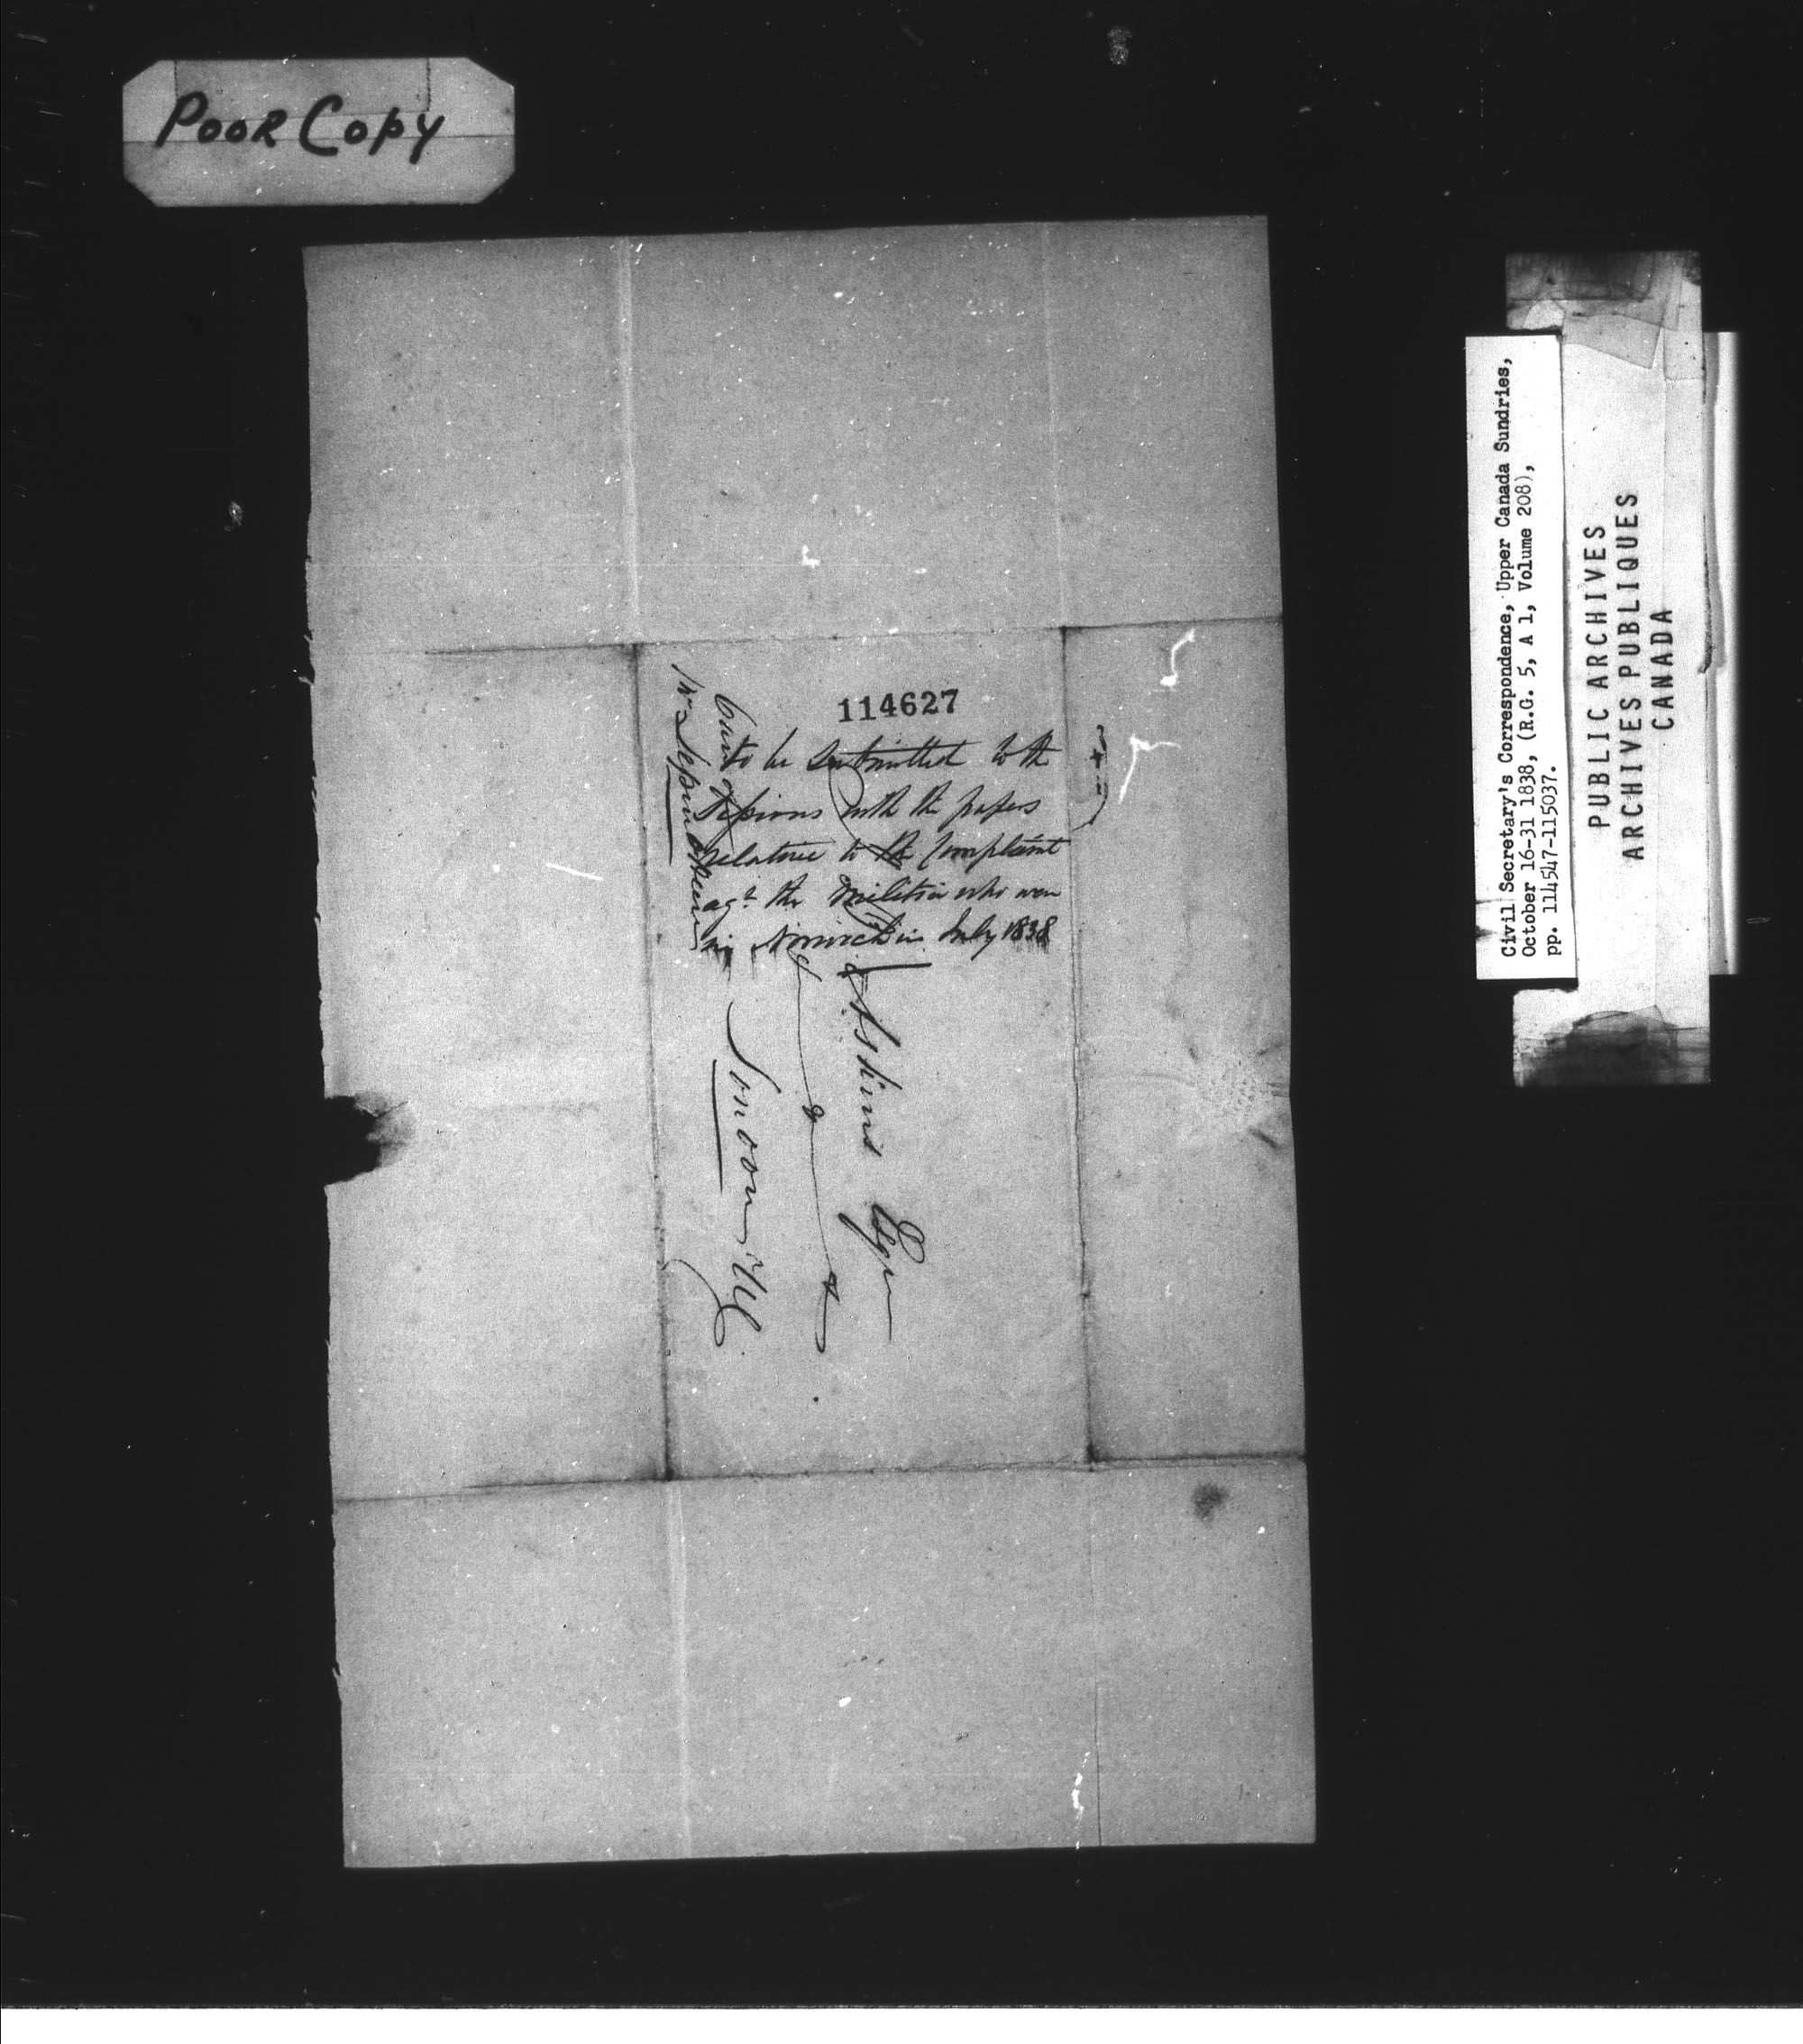 POOR COPY
114627
to be submitted to the
with the papers
relative to the Complaint
agt the Militia who were
in Norwich in July 1838
Askins Esqr
&c &c
London U.C.
Civil Secretary's Correspondence, Upper Canada Sundries,
October 16-31 1838, (R.G. 5, A 1, Volume 208),
pp. 114547-115037.
PUBLIC ARCHIVES
ARCHIVES PUBLIQUES
CANADA